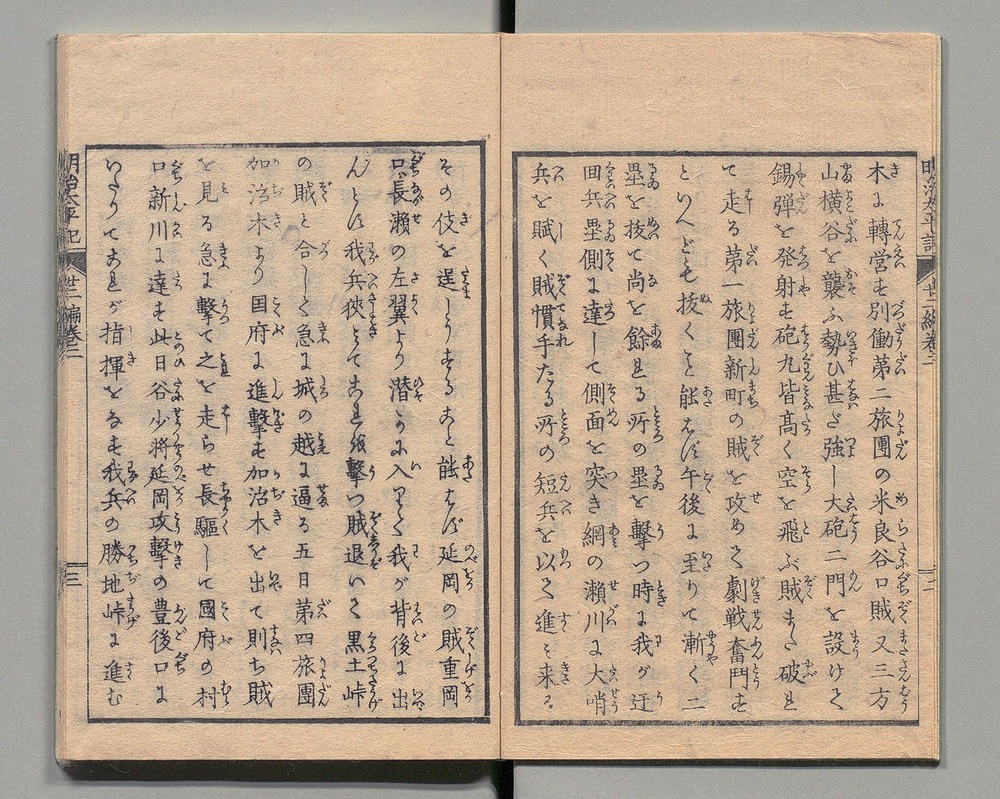 明治太平記 廿二編巻三 二
木に轉営す別働第二旅團の米良谷口賊又三方
山横谷を襲ふ勢ひ甚だ強し大砲二門を設けて
錫弾を発射す砲丸皆高く空を飛ぶ賊また破れ
て走る第一旅團新町の賊を攻めて劇戦奮鬥す
といへども抜くこと能はず午後に至りて漸く二
塁を抜て尚を餘れる所の塁を撃つ時に我が迂
回兵塁側に達して側面を突き綱の瀬川に大哨
兵を賦く賊慣手たる所の短兵を以て進み来る
その伎を逞しうすること能はず延岡の賊重岡
口長瀬の左翼より潜かに入りて我が背後に出
んとは我兵狹とてこれを撃つ賊退いて黒土峠
の賊と合して急に城の越に逼る五日第四旅團
加治木より国府に進撃す加治木を出て則ち賊
を見る急に撃て之を走らせ長驅して國府の村
口新川に達す此日谷少将延岡攻撃の豊後口に
いたりてこれが指揮をなす我兵の勝地峠に進む
明治太平記 廿二編巻三 三